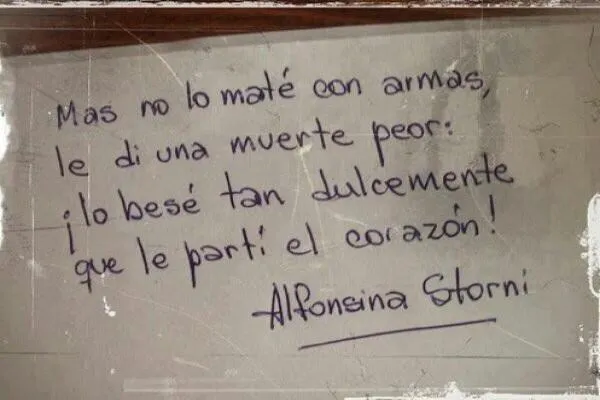 Mas no lo maté con armas,
le di una muerte peor:
¡lo besé tan dulcemente
que le partí el corazón!
Alfonsina Storni